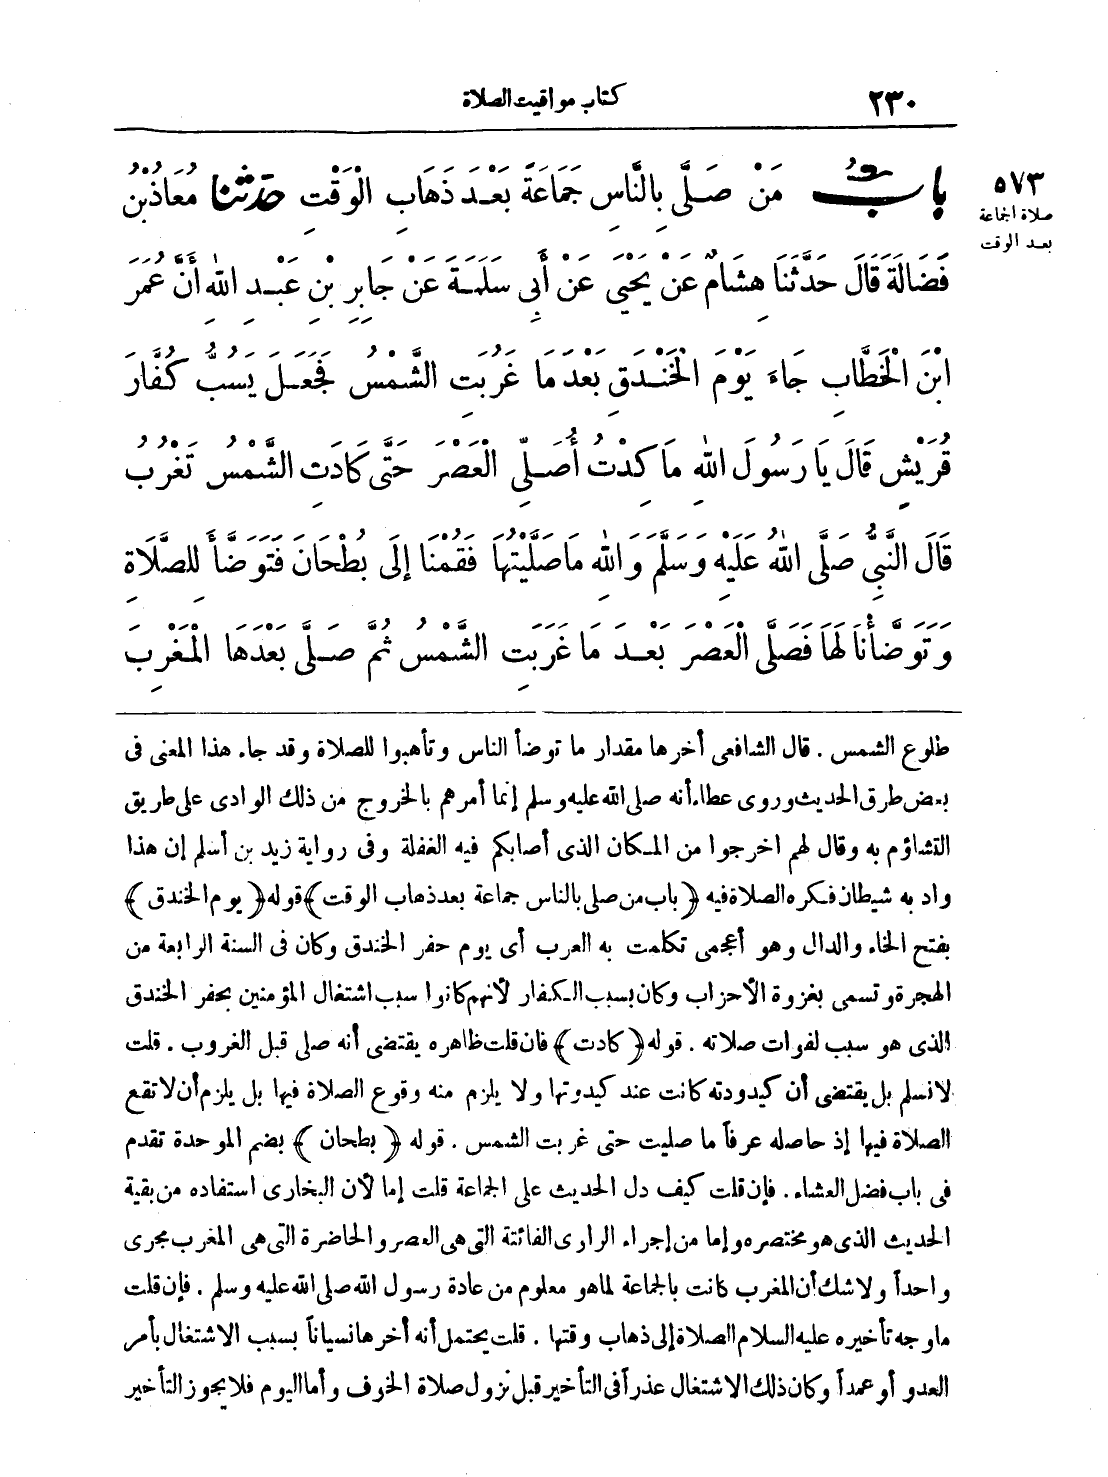 ٢٣٠ كتاب مواقيت الصلاة
٥٧٣
صلاة الجماعة
بعد الوقت
بابٌ مَنْ صَلَّى بِالنَّاسِ جَمَاعَةً بَعْدَ ذَهَابِ الْوَقْتِ حدثنا مُعَاذُ بْنُ
فَضَالَةَ قَالَ حَدَّثَنَا هِشَامٌ عَنْ يَحْيَى عَنْ أَبِي سَلَمَةَ عَنْ جَابِرِ بْنِ عَبْدِ اللهِ أَنَّ عُمَرَ
ابْنَ الْخَطَّابِ جَاءَ يَوْمَ الْخَنْدَقِ بَعْدَ مَا غَرُبَتِ الشَّمْسُ فَجَعَلَ يَسُبُّ كُفَّارَ
قُرَيْشٍ قَالَ يَا رَسُولَ اللهِ مَا كِدْتُ أُصَلِّي الْعَصْرَ حَتَّى كَادَتِ الشَّمْسُ تَغْرُبُ
قَالَ النَّبِيُّ صَلَّى اللهُ عَلَيْهِ وَسَلَّمَ وَاللهِ مَا صَلَّيْتُهَا فَقُمْنَا إِلَى بُطْحَانَ فَتَوَضَّأَ لِلصَّلَاةِ
وَتَوَضَّأْنَا لَهَا فَصَلَّى الْعَصْرَ بَعْدَ مَا غَرَبَتِ الشَّمْسُ ثُمَّ صَلَّى بَعْدَهَا الْمَغْرِبَ
طلوع الشمس . قال الشافعى أخرها مقدار ما توضأ الناس وتأهبوا للصلاة وقد جاء هذا المعنى فى
بعض طرق الحديث وروى عطاء أنه صلى الله عليه وسلم إنما أمرهم بالخروج من ذلك الوادى على طريق
التشاؤم به وقال لهم اخرجوا من المكان الذى أصابكم فيه الغفلة وفى رواية زيد بن أسلم إن هذا
واد به شيطان فكره الصلاة فيه ﴿باب من صلى بالناس جماعة بعد ذهاب الوقت﴾ قوله ﴿يوم الخندق﴾
بفتح الخاء والدال وهو أعجمى تكلمت به العرب أى يوم حفر الخندق وكان فى السنة الرابعة من
الهجرة وتسمى بغزوة الأحزاب وكان بسبب الكفار لأنهم كانوا سبب اشتغال المؤمنين بحفر الخندق
الذى هو سبب لفوات صلاته . قوله ﴿كادت﴾ فان قلت ظاهره يقتضى أنه صلى قبل الغروب . قلت
لا نسلم بل يقتضى أن كيدودته كانت عند كيدوتها ولا يلزم منه وقوع الصلاة فيها بل يلزم أن لا تقع
الصلاة فيها إذ حاصله عرفاً ما صليت حتى غربت الشمس . قوله ﴿بطحان﴾ بضم الموحدة تقدم
فى باب فضل العشاء . فإن قلت كيف دل الحديث على الجماعة قلت إما لأن البخارى استفاده من بقية
الحديث الذى هو مختصره وإما من إجراء الراوى الفائتة التى هى العصر والحاضرة التى هى المغرب مجرى
واحداً ولا شك أن المغرب كانت بالجماعة لما هو معلوم من عادة رسول الله صلى الله عليه وسلم . فإن قلت
ما وجه تأخيره عليه السلام الصلاة إلى ذهاب وقتها . قلت يحتمل أنه أخرها نسياناً بسبب الاشتغال بأمر
العدو أو عمداً وكان ذلك الاشتغال عذراً فى التأخير قبل نزول صلاة الخوف وأما اليوم فلا يجوز التأخير